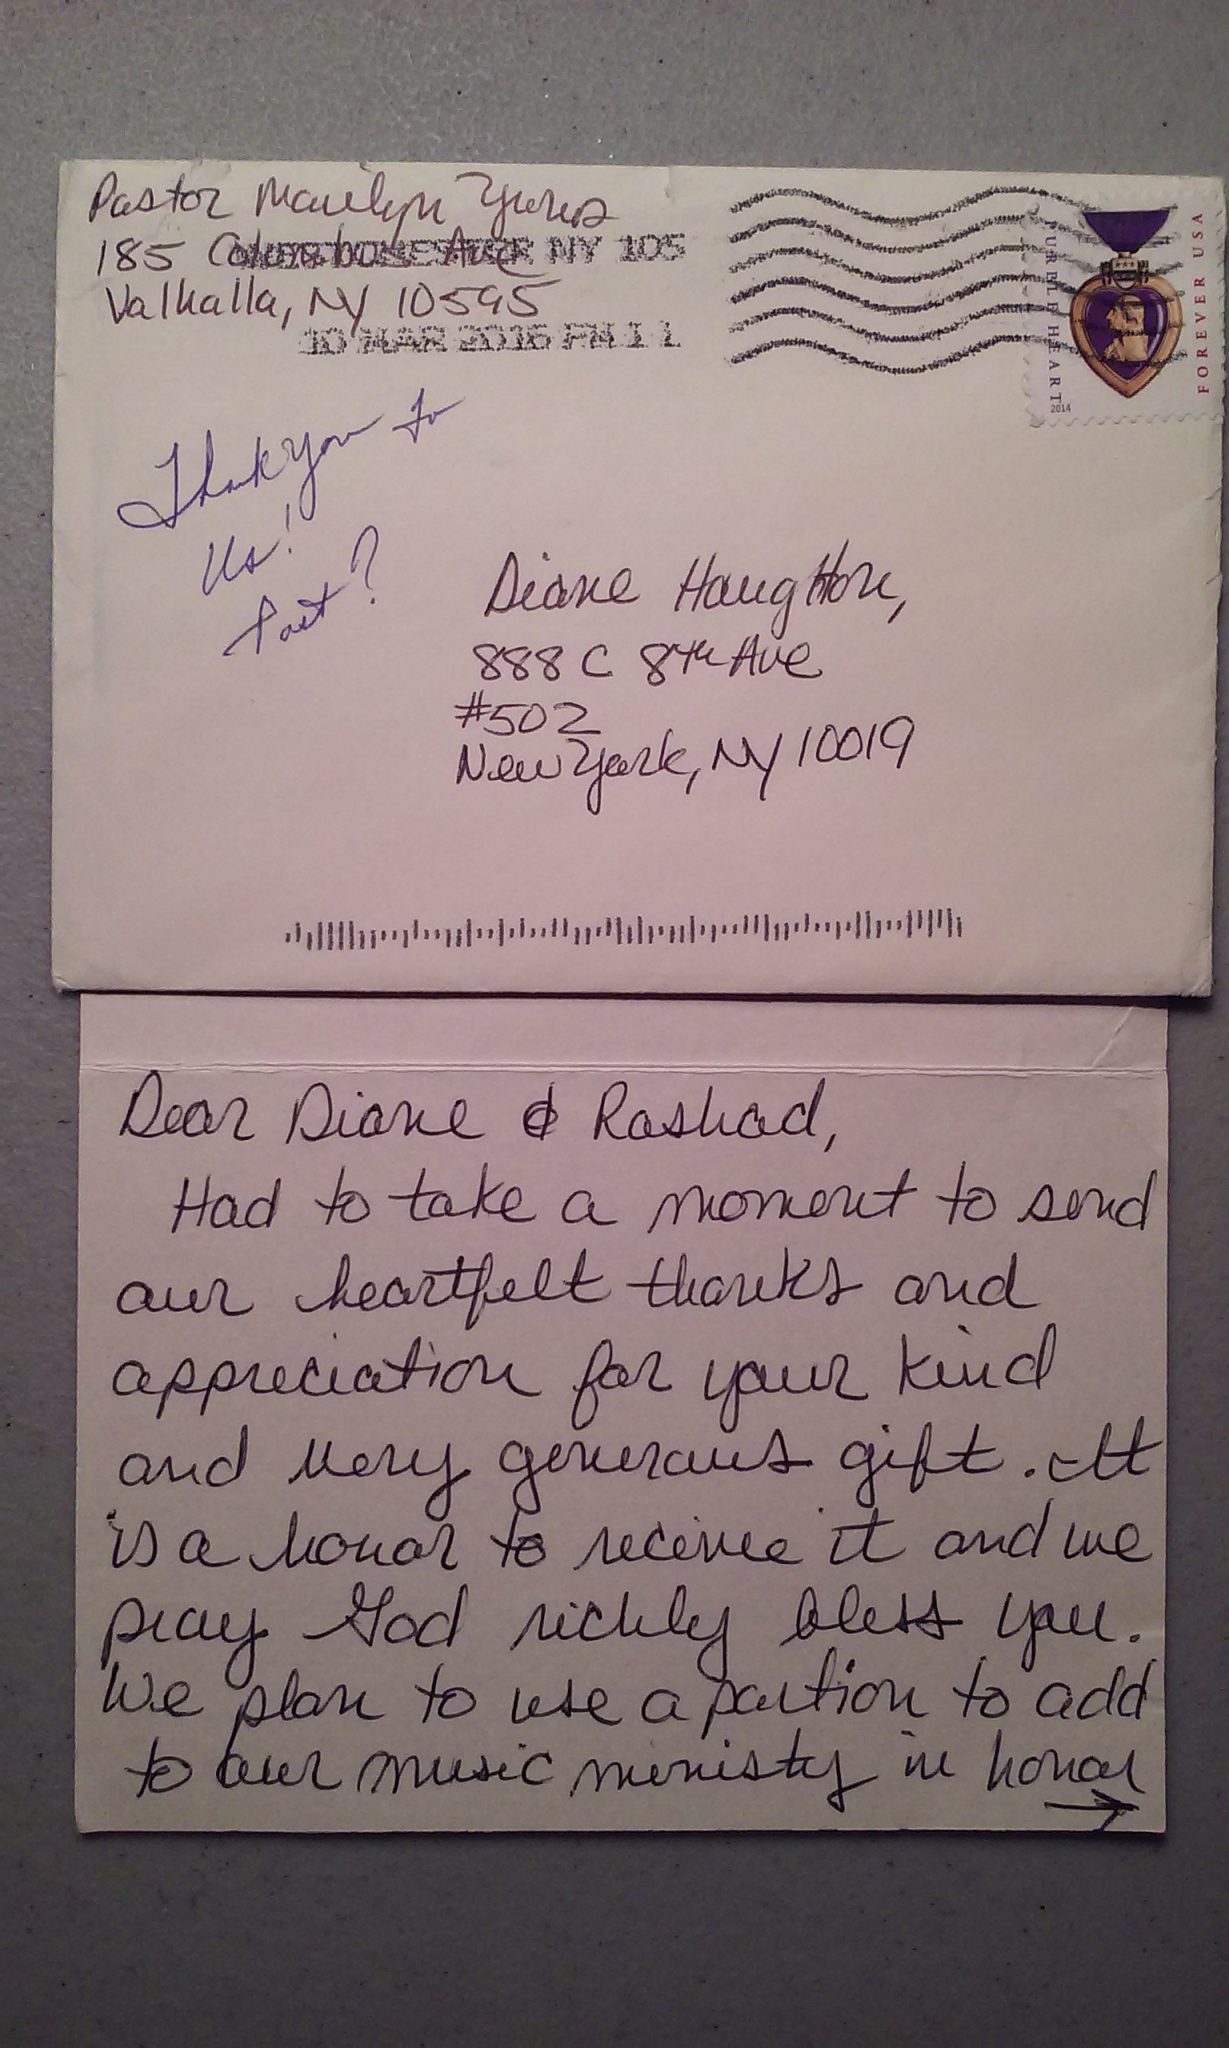 Pastor Marilyn
185 Columbus Ave
WESTCHESTER NY 105
Valhalla, NY 10595
10 MAR 2016 PM 1 L
PURPLE HEART
FOREVER USA
2014
Thank you to
us!
Post?
Diane Haughton,
888 C 8th Ave
#502
New York, NY 10019
Dear Diane & Rashad,
Had to take a moment to send
our heartfelt thanks and
appreciation for your kind
and very generous gift. It
is a honor to recieve it and we
pray God richly bless you.
We plan to use a portion to add
to our music ministy in honor